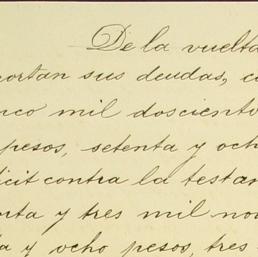 De la vuelta
cortan sus deudas, c
nco mil dosciento
pesos, setenta y och
icit contra la testan
nta y tres mil nov
a y ocho pesos, tres